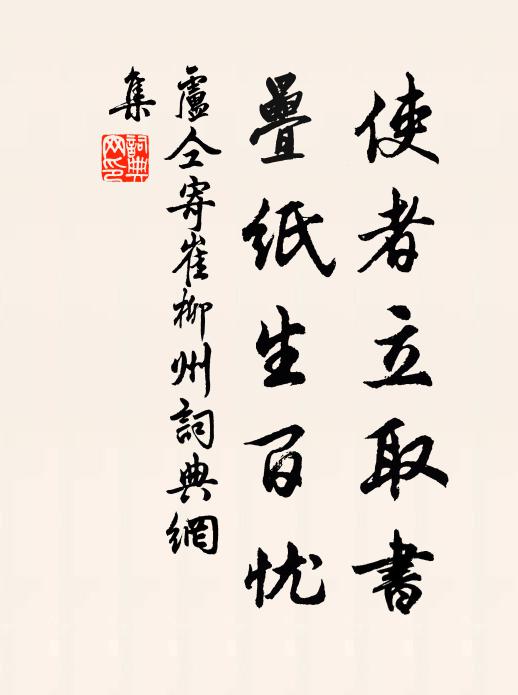 使者立取書
疊紙生百忧
盧仝寄崔柳州詞典網
集
詞典
网印